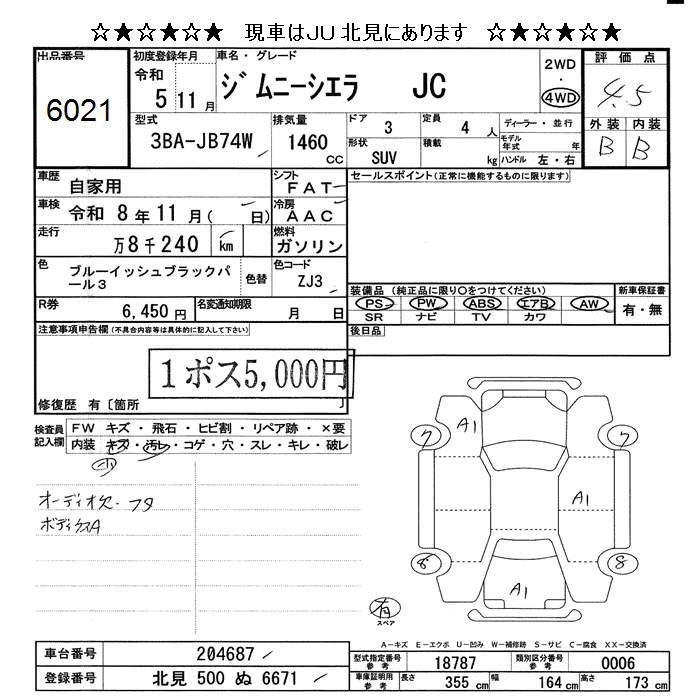 ☆★☆★☆★ 現車はJU北見にあります ☆★☆★☆★
出品番号 初度登録年月 車名・グレード 2WD・4WD 評価点
6021 令和 5年 11月 ジムニーシエラ JC 4.5
型式 排気量 ドア 3 定員 4人 ディーラー・並行 外装 内装
3BA-JB74W 1460cc 形状 SUV 積載 kg モデル年式 年 B B
ハンドル 左・右
車歴 自家用 シフト FAT セールスポイント(正常に機能するものに限ります)
車検 令和 8年 11月( 日) 冷房 AAC
走行 万8千240 km 燃料 ガソリン
色 ブルーイッシュブラックパール3 色替 色コード ZJ3
装備品(純正品に限り○をつけてください) 新車保証書
PS PW ABS エアB AW 有・無
R券 6,450円 名変通知期限 月 日 SR ナビ TV カワ
注意事項申告欄(不具合内容等は具体的に記入して下さい) 後日品
1ポス5,000円
修復歴 有〔箇所 〕
検査員記入欄 FW キズ・飛石・ヒビ割・リペア跡・×要
内装 キズ・汚レ・コゲ・穴・スレ・キレ・破レ
少
オーディオ欠.フタ
ボディクスA
A1
7 7
A1
8 8
A1
有
スペア
A-キズ E-エクボ U-凹み W-補修跡 S-サビ C-腐食 XX-交換済
車台番号 204687 型式指定番号参考 18787 類別区分番号参考 0006
登録番号 北見 500 ぬ 6671 車庫証明用参考 長さ 355cm 幅 164cm 高さ 173cm